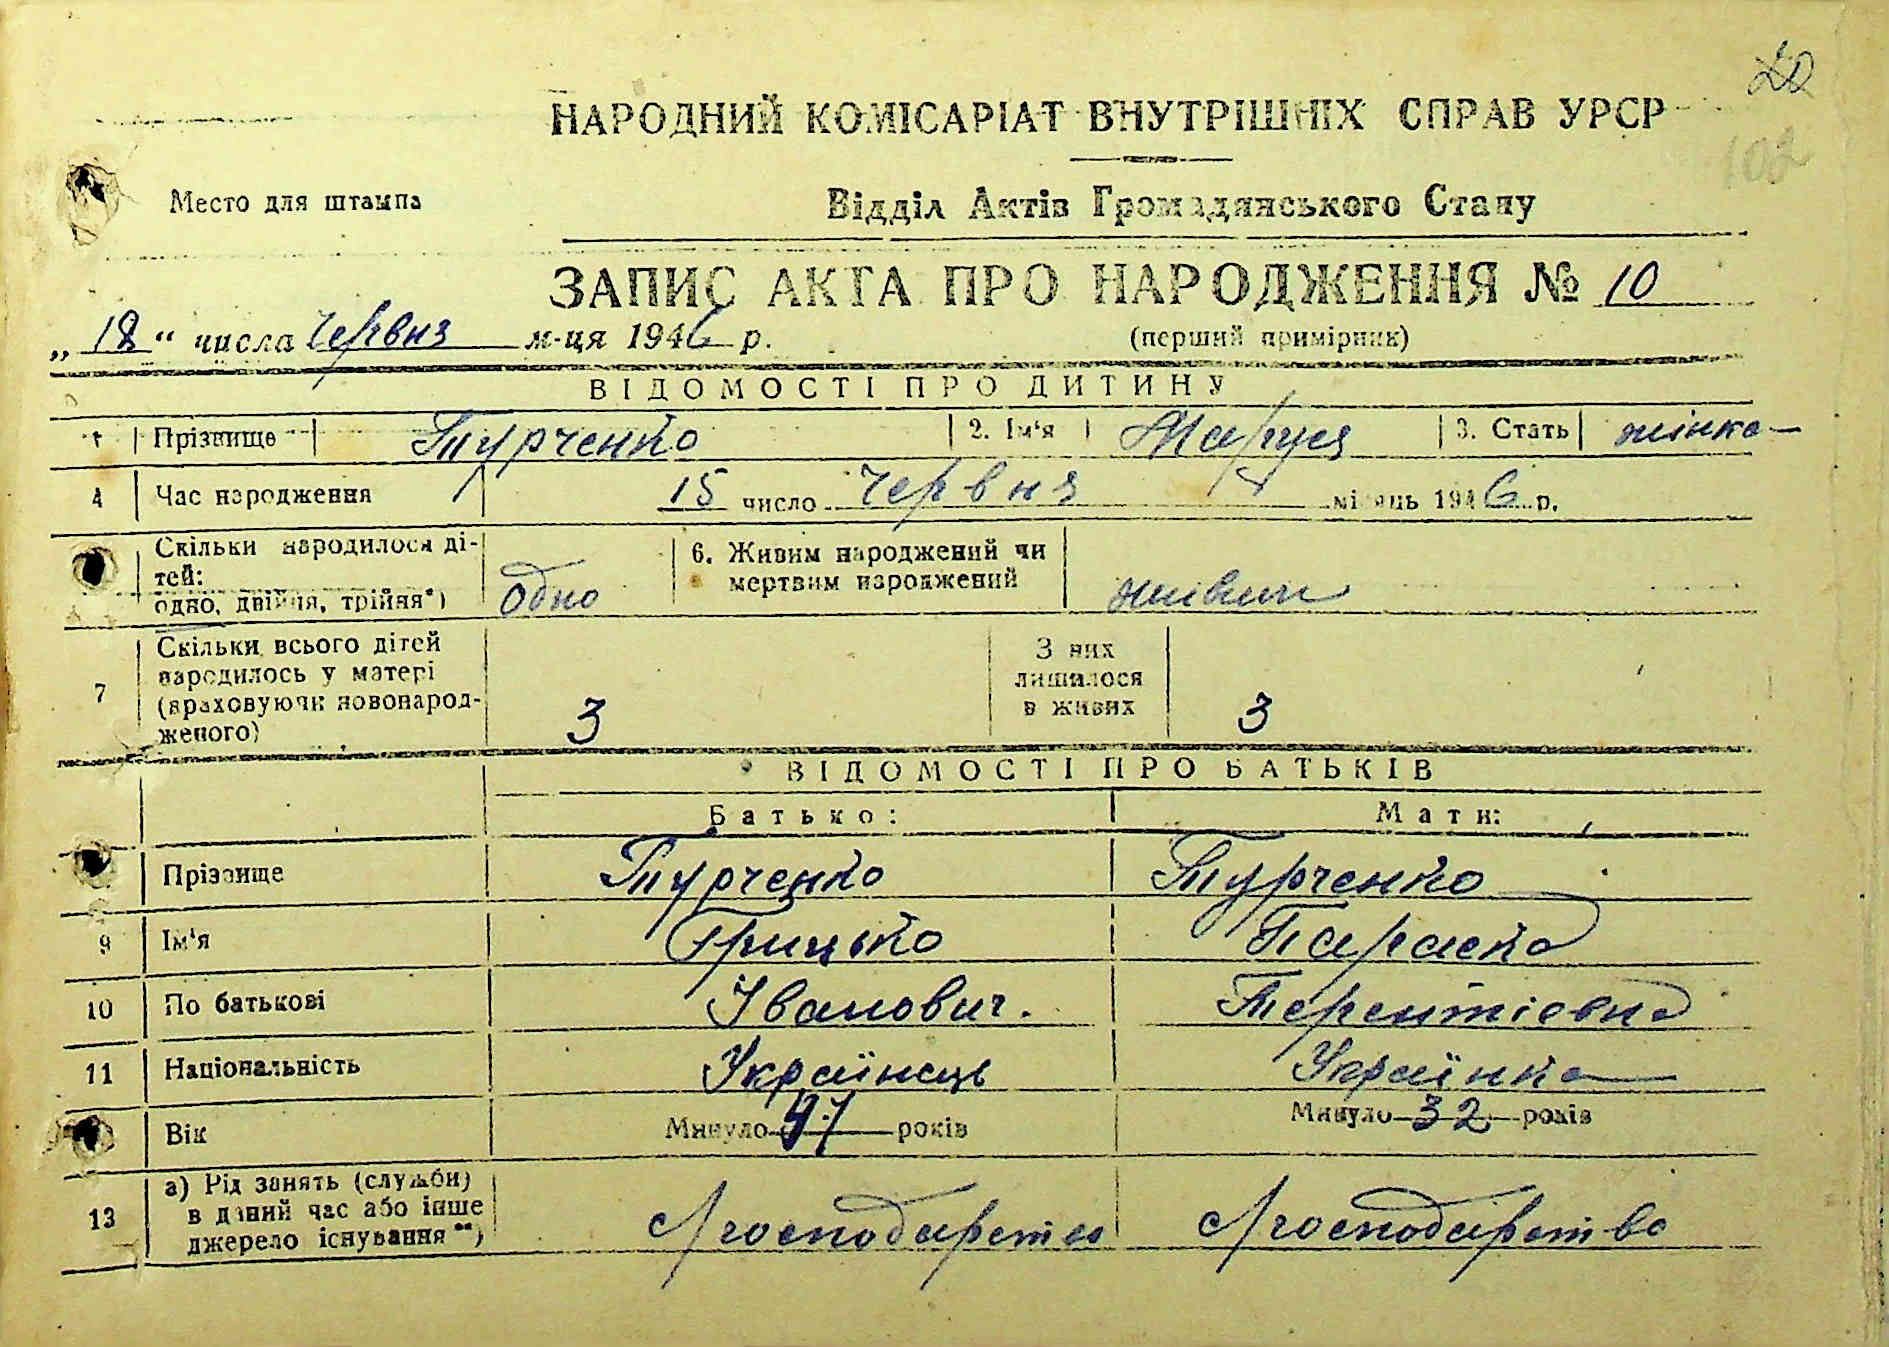 20
НАРОДНИЙ КОМІСАРІАТ ВНУТРІШНІХ СПРАВ УРСР
102
Место для штампа
Відділ Актів Громадянського Стану
ЗАПИС АКТА ПРО НАРОДЖЕННЯ № 10
„18“ числа Червня м-ця 1946 р.
(перший примірник)
ВІДОМОСТІ ПРО ДИТИНУ
1 Прізвище Турченко 2. Ім'я Маруся 3. Стать жінка
4 Час народження 15 число Червня місяць 1946 р.
Скільки народилося ді-
тей:
одно, двійня, трійня*) Одно
6. Живим народжений чи
мертвим народжений живим
7 Скільки всього дітей
народилось у матері
(враховуючи новонарод-
женого) 3
З них
лишилося
в живих 3
ВІДОМОСТІ ПРО БАТЬКІВ
Батько: Мати:
Прізвище Турченко Турченко
9 Ім'я Грицько Параска
10 По батькові Іванович. Терентієвна
11 Національність Українець Українка
Вік Минуло 47 років Минуло 32 років
13 а) Рід занять (служби)
в даний час або інше
джерело існування**) С/господарство С/господарство